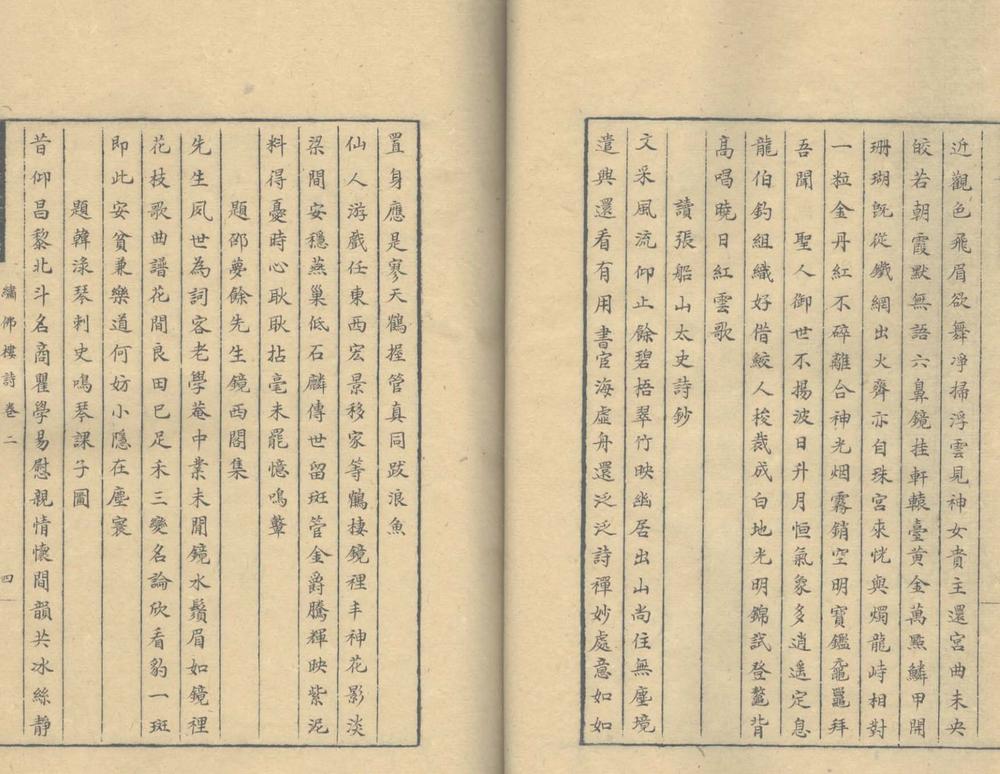 近觀色飛眉欲舞淨掃浮雲見神女貴主還宮曲未央
皎若朝霞默無語六鼻鏡挂軒轅臺黃金萬點鱗甲開
珊瑚旣從鐵網出火齊亦自珠宮來恍與燭龍峙相對
一粒金丹紅不碎離合神光烟霧銷空明寶鑑黿鼉拜
吾聞　聖人御世不揚波日升月恒氣象多逍遙定息
龍伯釣組織好借鮫人梭裁成白地光明錦試登鼇背
高唱曉日紅雲歌
讀張船山太史詩鈔
文采風流仰止餘碧梧翠竹映幽居出山尚住無塵境
遣興還看有用書宦海虛舟還泛泛詩禪妙處意如如
置身應是寥天鶴握管真同跋浪魚
仙人游戲任東西宏景移家等鶴棲鏡裡丰神花影淡
梁間安穩燕巢低石麟傳世留斑管金爵騰輝映紫泥
料得憂時心耿耿拈毫未罷憶鳴鼙
題邵夢餘先生鏡西閣集
先生夙世為詞客老學菴中業未閒鏡水鬚眉如鏡裡
花枝歌曲譜花間良田巳足禾三變名論欣看豹一斑
即此安貧兼樂道何妨小隱在塵寰
題韓淥琴刺史鳴琴課子圖
昔仰昌黎北斗名商瞿學易慰親情懷間韻共冰絲靜
繡佛樓詩卷二
四